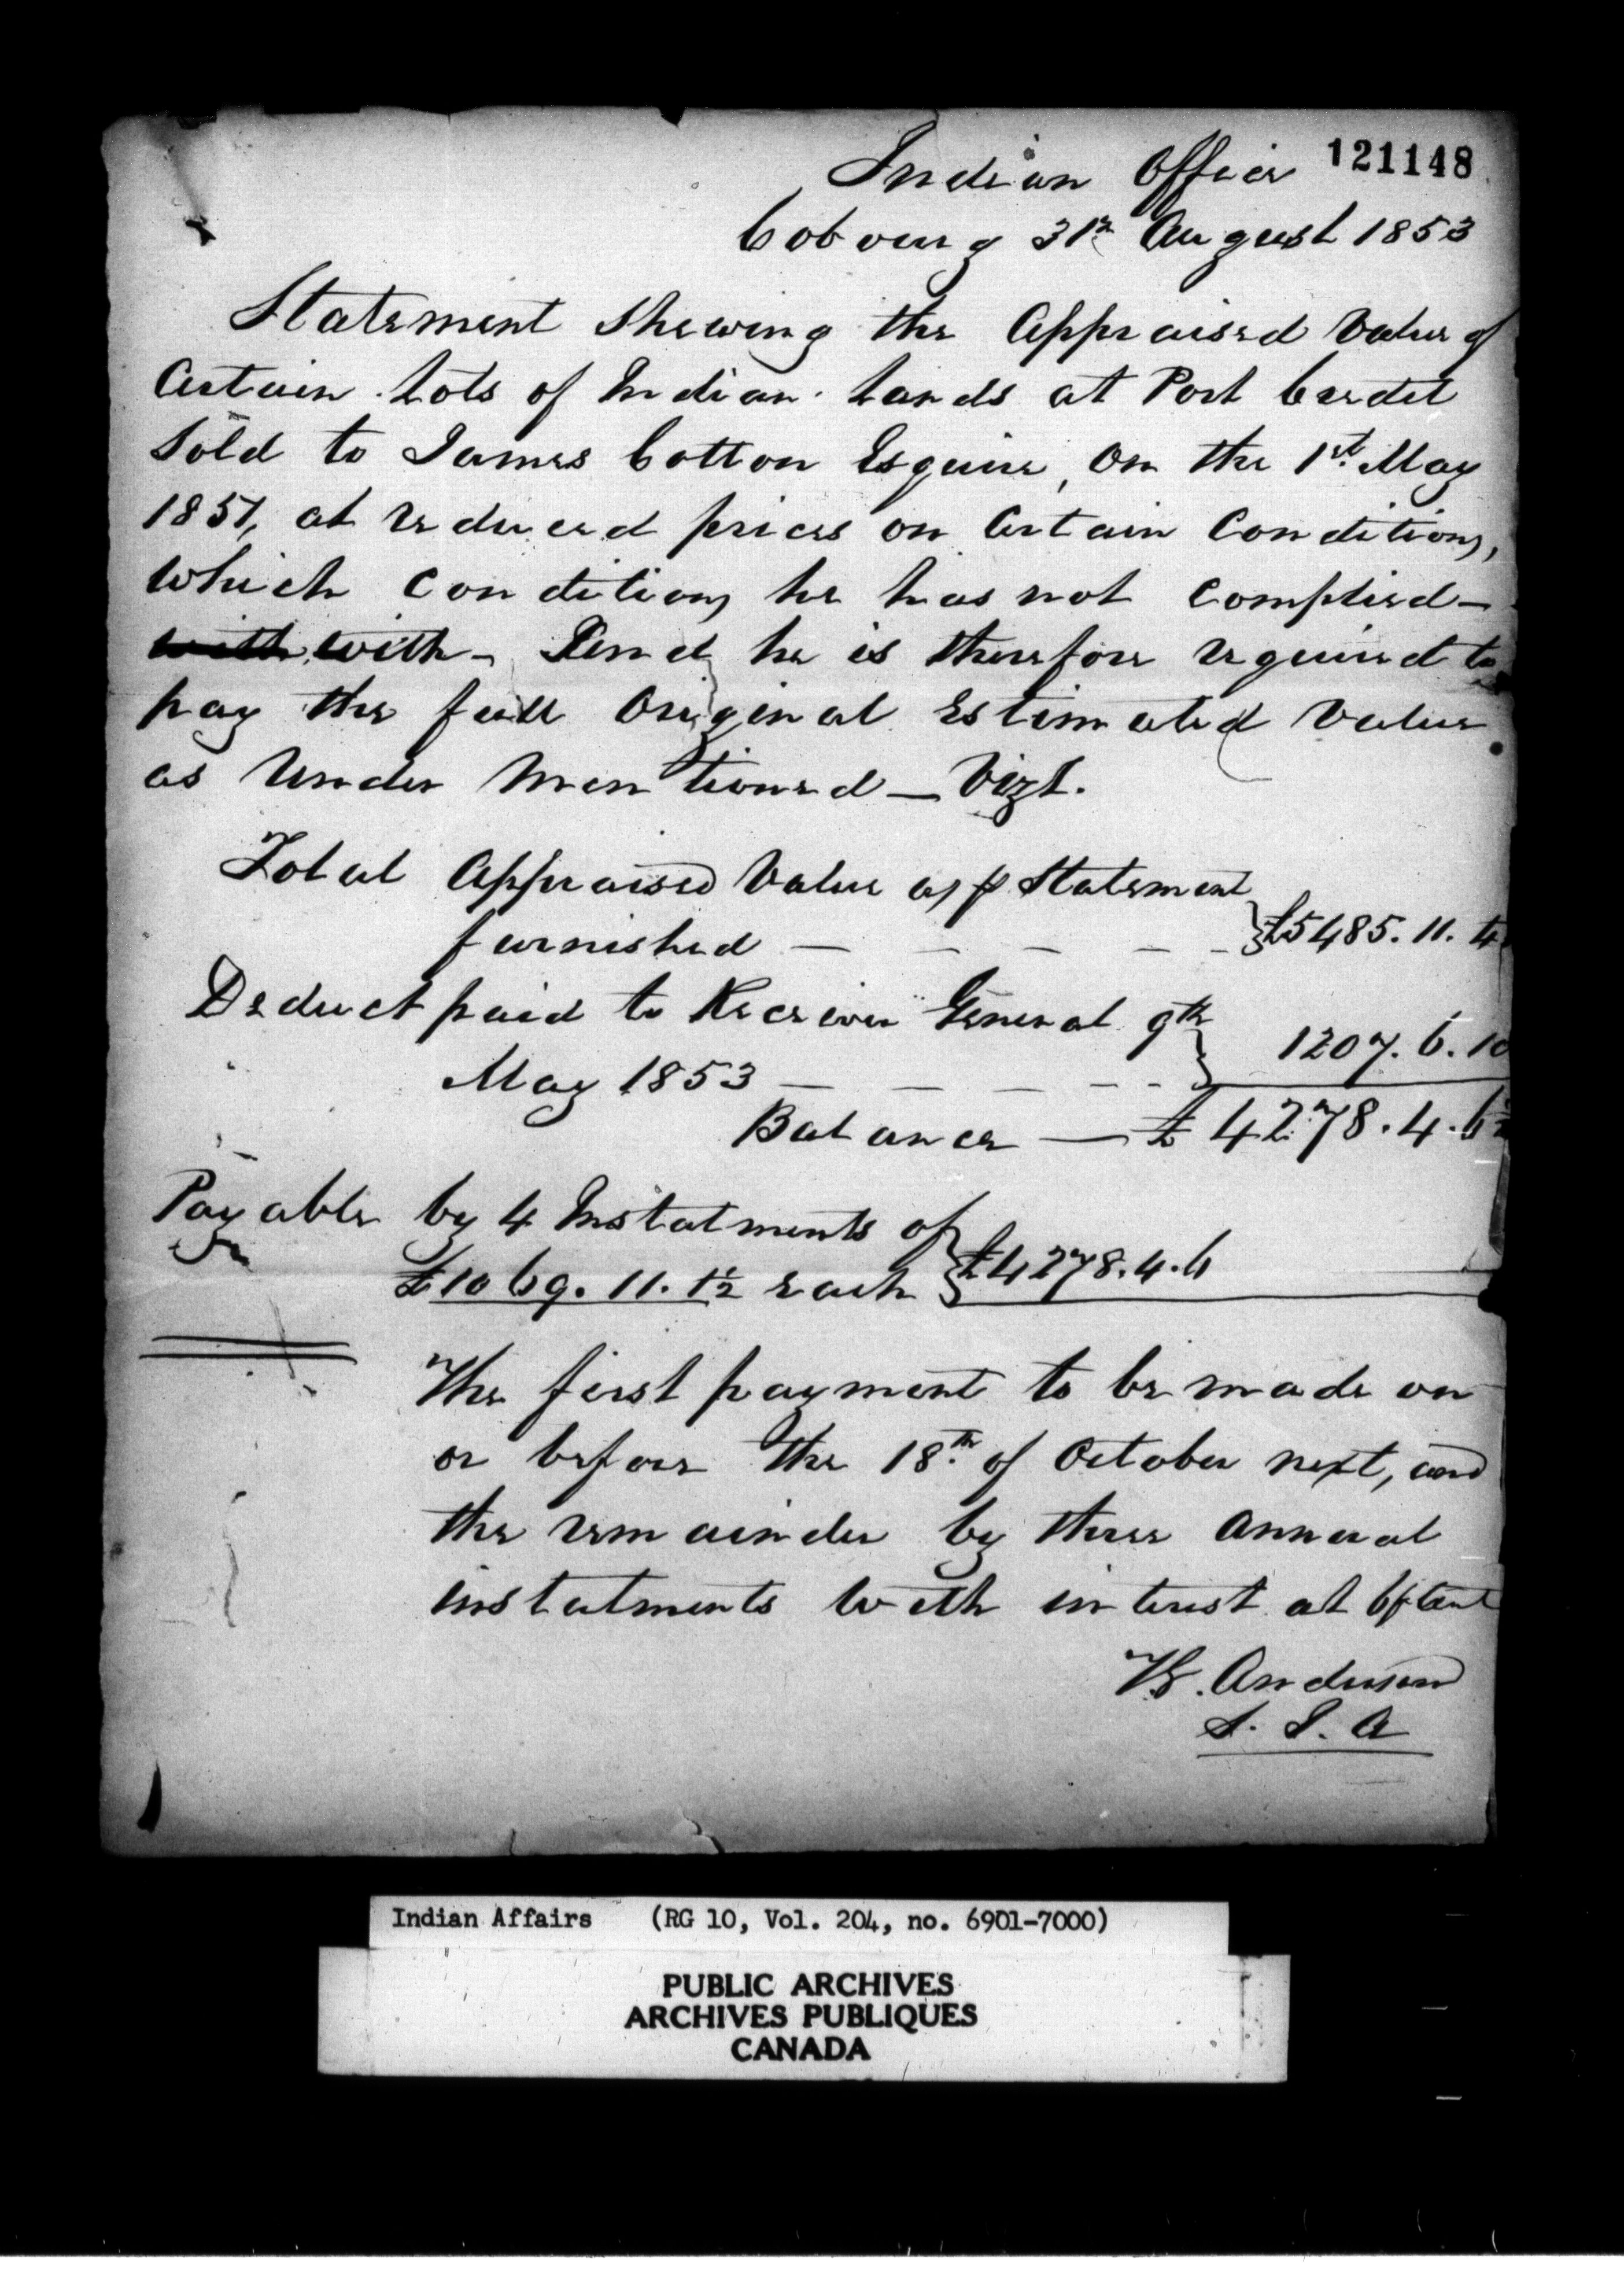 121148
Indian Office
Cobourg 31st August 1853
Statement Shewing the Appraised Value of
Certain Lots of Indian Lands at Port Credit
Sold to James Cotton Esquire, On the 1st May
1851, at reduced prices on Certain Conditions,
which Conditions he has not Complied –
with with – And he is therefore required to
pay the full Original Estimated Value
as Under Mentioned – Vizt.
Total Appraised Value as p Statement
furnished – – – – – £5485. 11. 4
Deduct paid to Receiver General 9th
May 1853 – – – – – 1207. 6. 10
Balance – £ 4278. 4. 6
Payable by 4 Instalments of
£1069. 11. 1½ each £4278. 4. 6
The first payment to be made on
or before the 18th of October next, and
the remainder by three Annual
instalments with interest at 6 p Cent
Anderson
S. I. A
Indian Affairs (RG 10, Vol. 204, no. 6901-7000)
PUBLIC ARCHIVES
ARCHIVES PUBLIQUES
CANADA